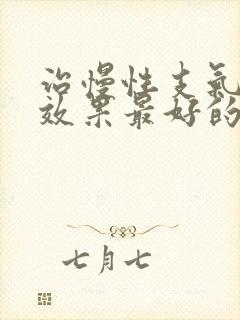 治慢性支氣
效果最好的
七月七